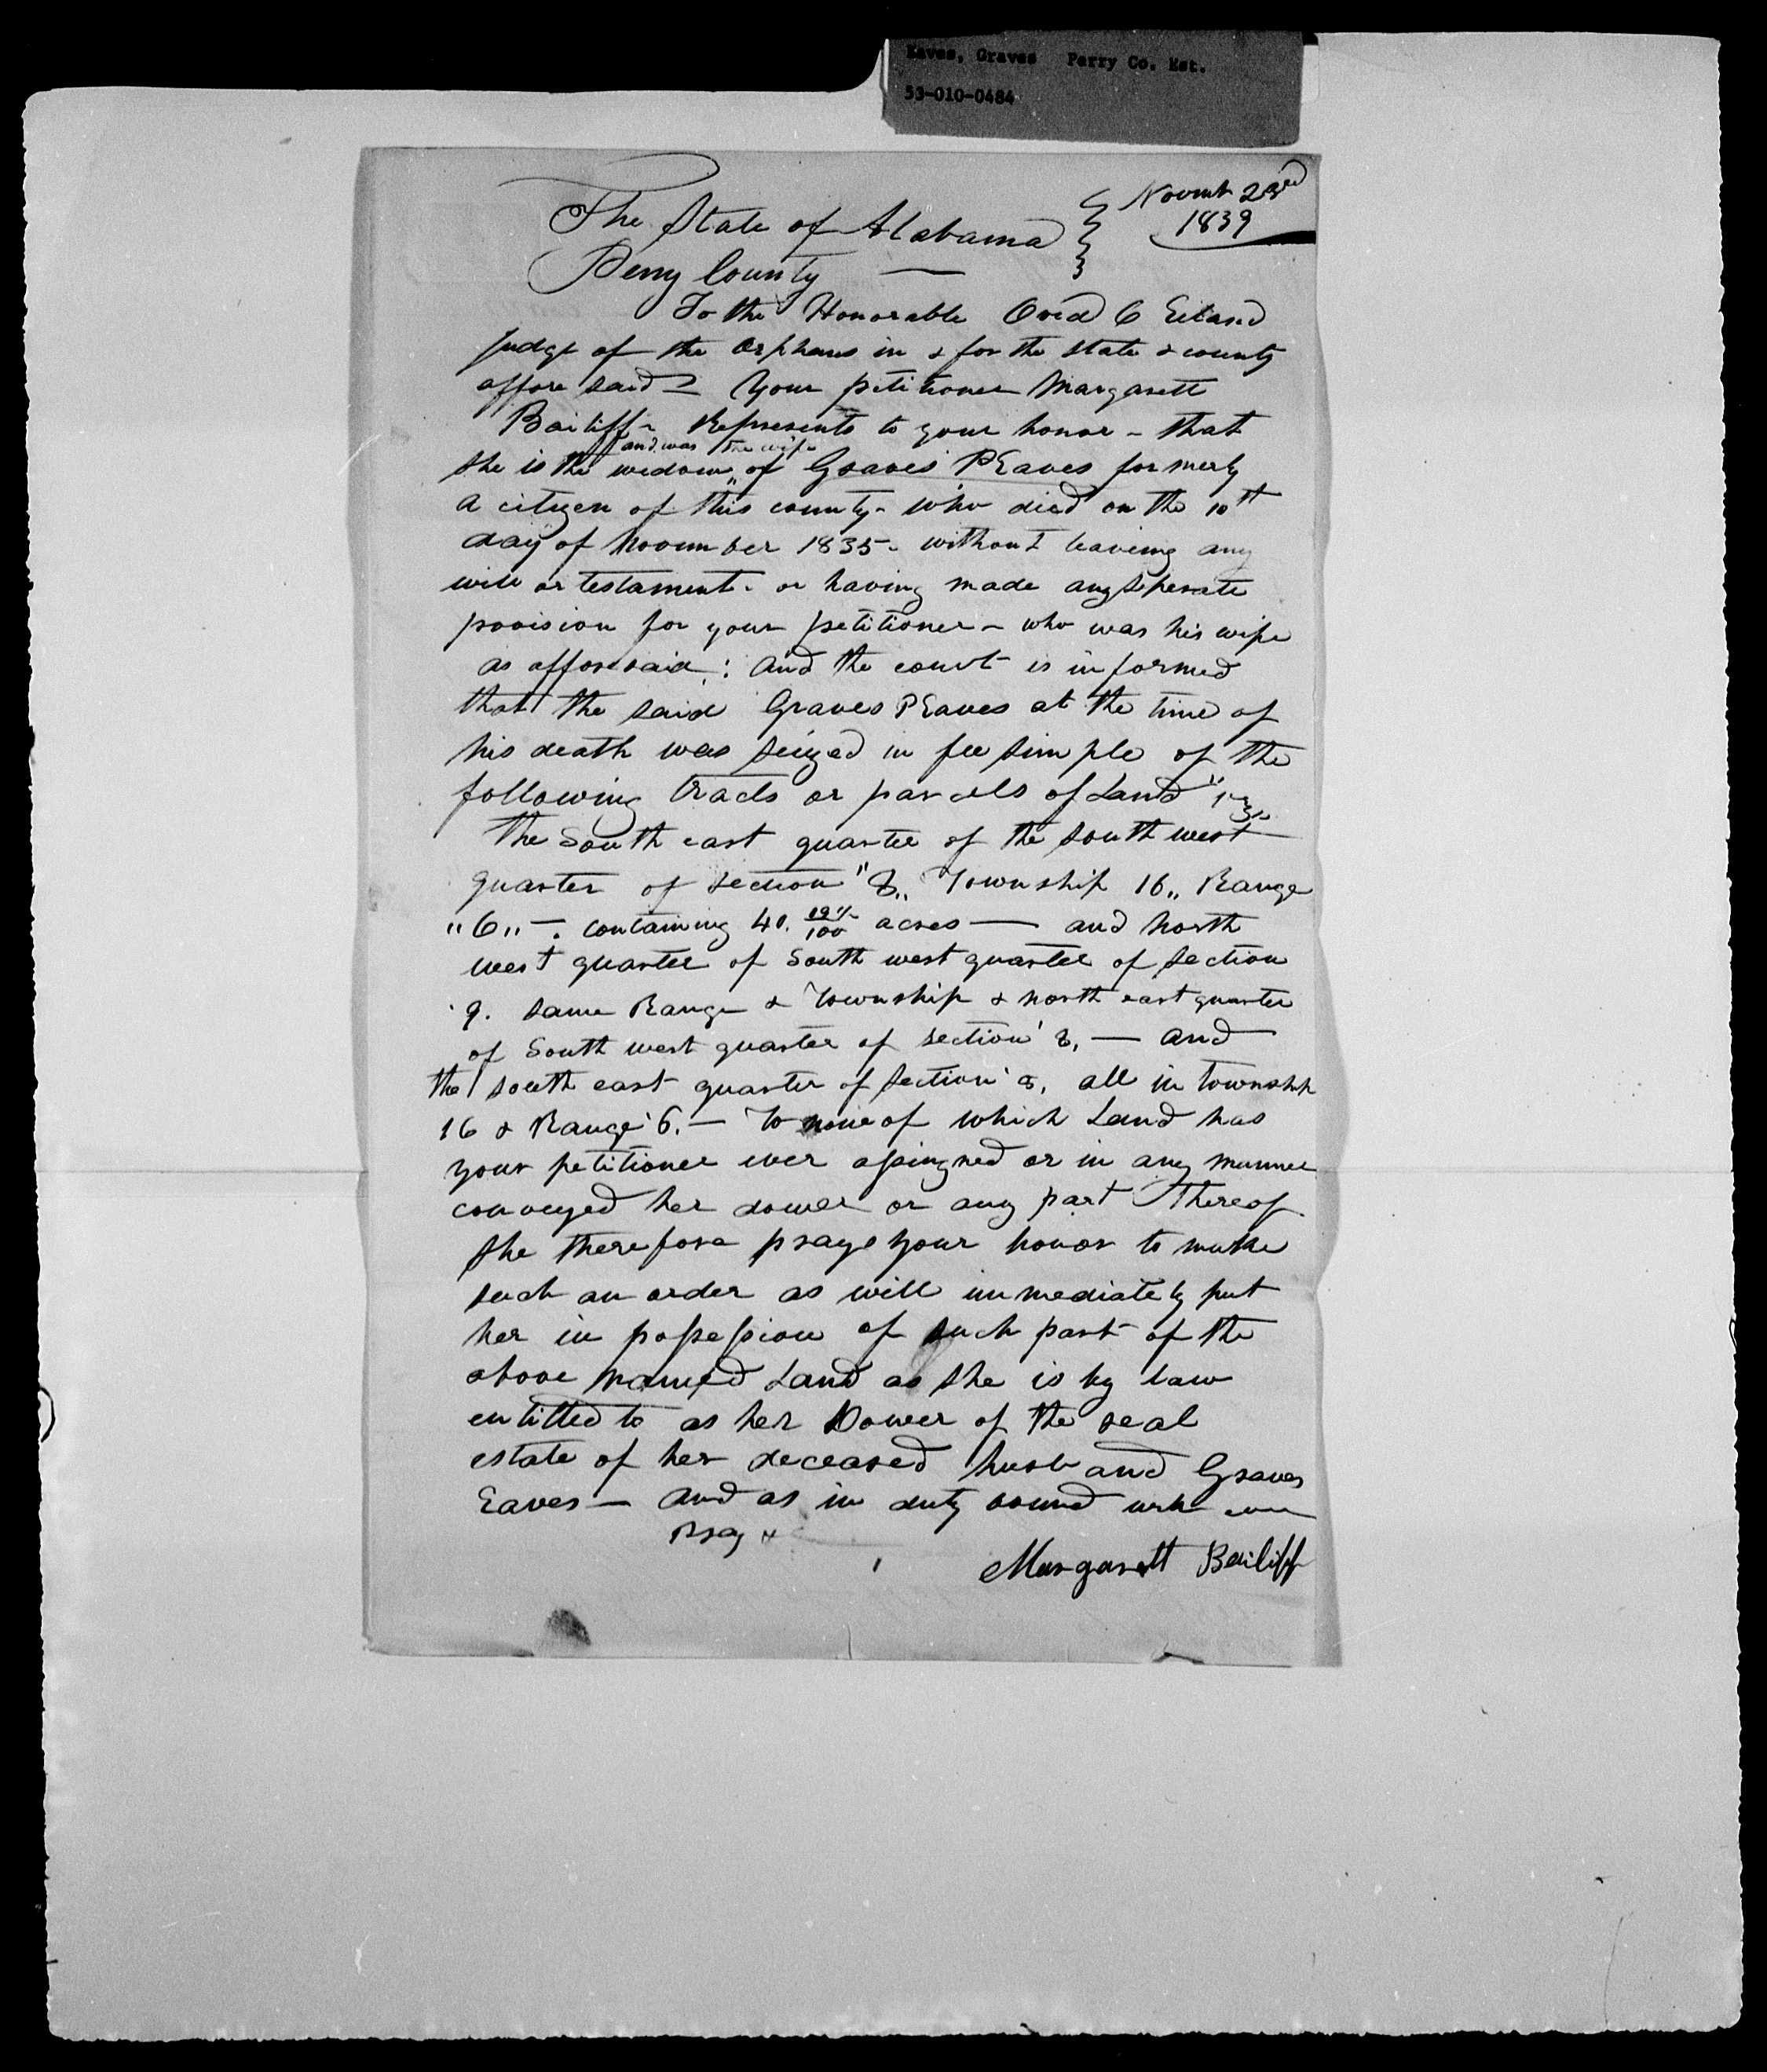 Eaves, Graves Perry Co. Est.
53-010-0484
Novemb 23rd
1839
The State of Alabama
Perry County —
To the Honorable Ovid C Eiland
Judge of the Orphans in & for the state & county
affore said — Your petitioner Margarett
Bailiff - Represents to your honor - that
and was the wife
she is the widow of Graves P Eaves formerly
a citizen of this county - who died on the 10th
day of November 1835 - without leaveing any
will or testament - or having made any Seperate
provision for your petitioner - who was his wife
as afforesaid : and the court is informed
that the said Graves P Eaves at the time of
his death was seized in fee simple of the
following tracts or parcels of Land
The South east quarter of the South west
quarter of Section "8,, Township 16,, Range
"6,, — containing 40. 19/100 acres — and North
west quarter of South west quarter of Section
9. same Range & Township & north east quarter
of South west quarter of section 8, — and
the south east quarter of section 8, all in township
16 & Range 6. — To none of which Land has
your petitioner ever assingned or in any manner
conveyed her dower or any part Thereof
She therefore prays your honor to make
such an order as will immediately put
her in possession of such part of the
above named Land as she is by law
entitled to as her Dower of the real
estate of her deceased husband Graves
Eaves — and as in duty bound will ever
Pray &
Margarett Bailiff